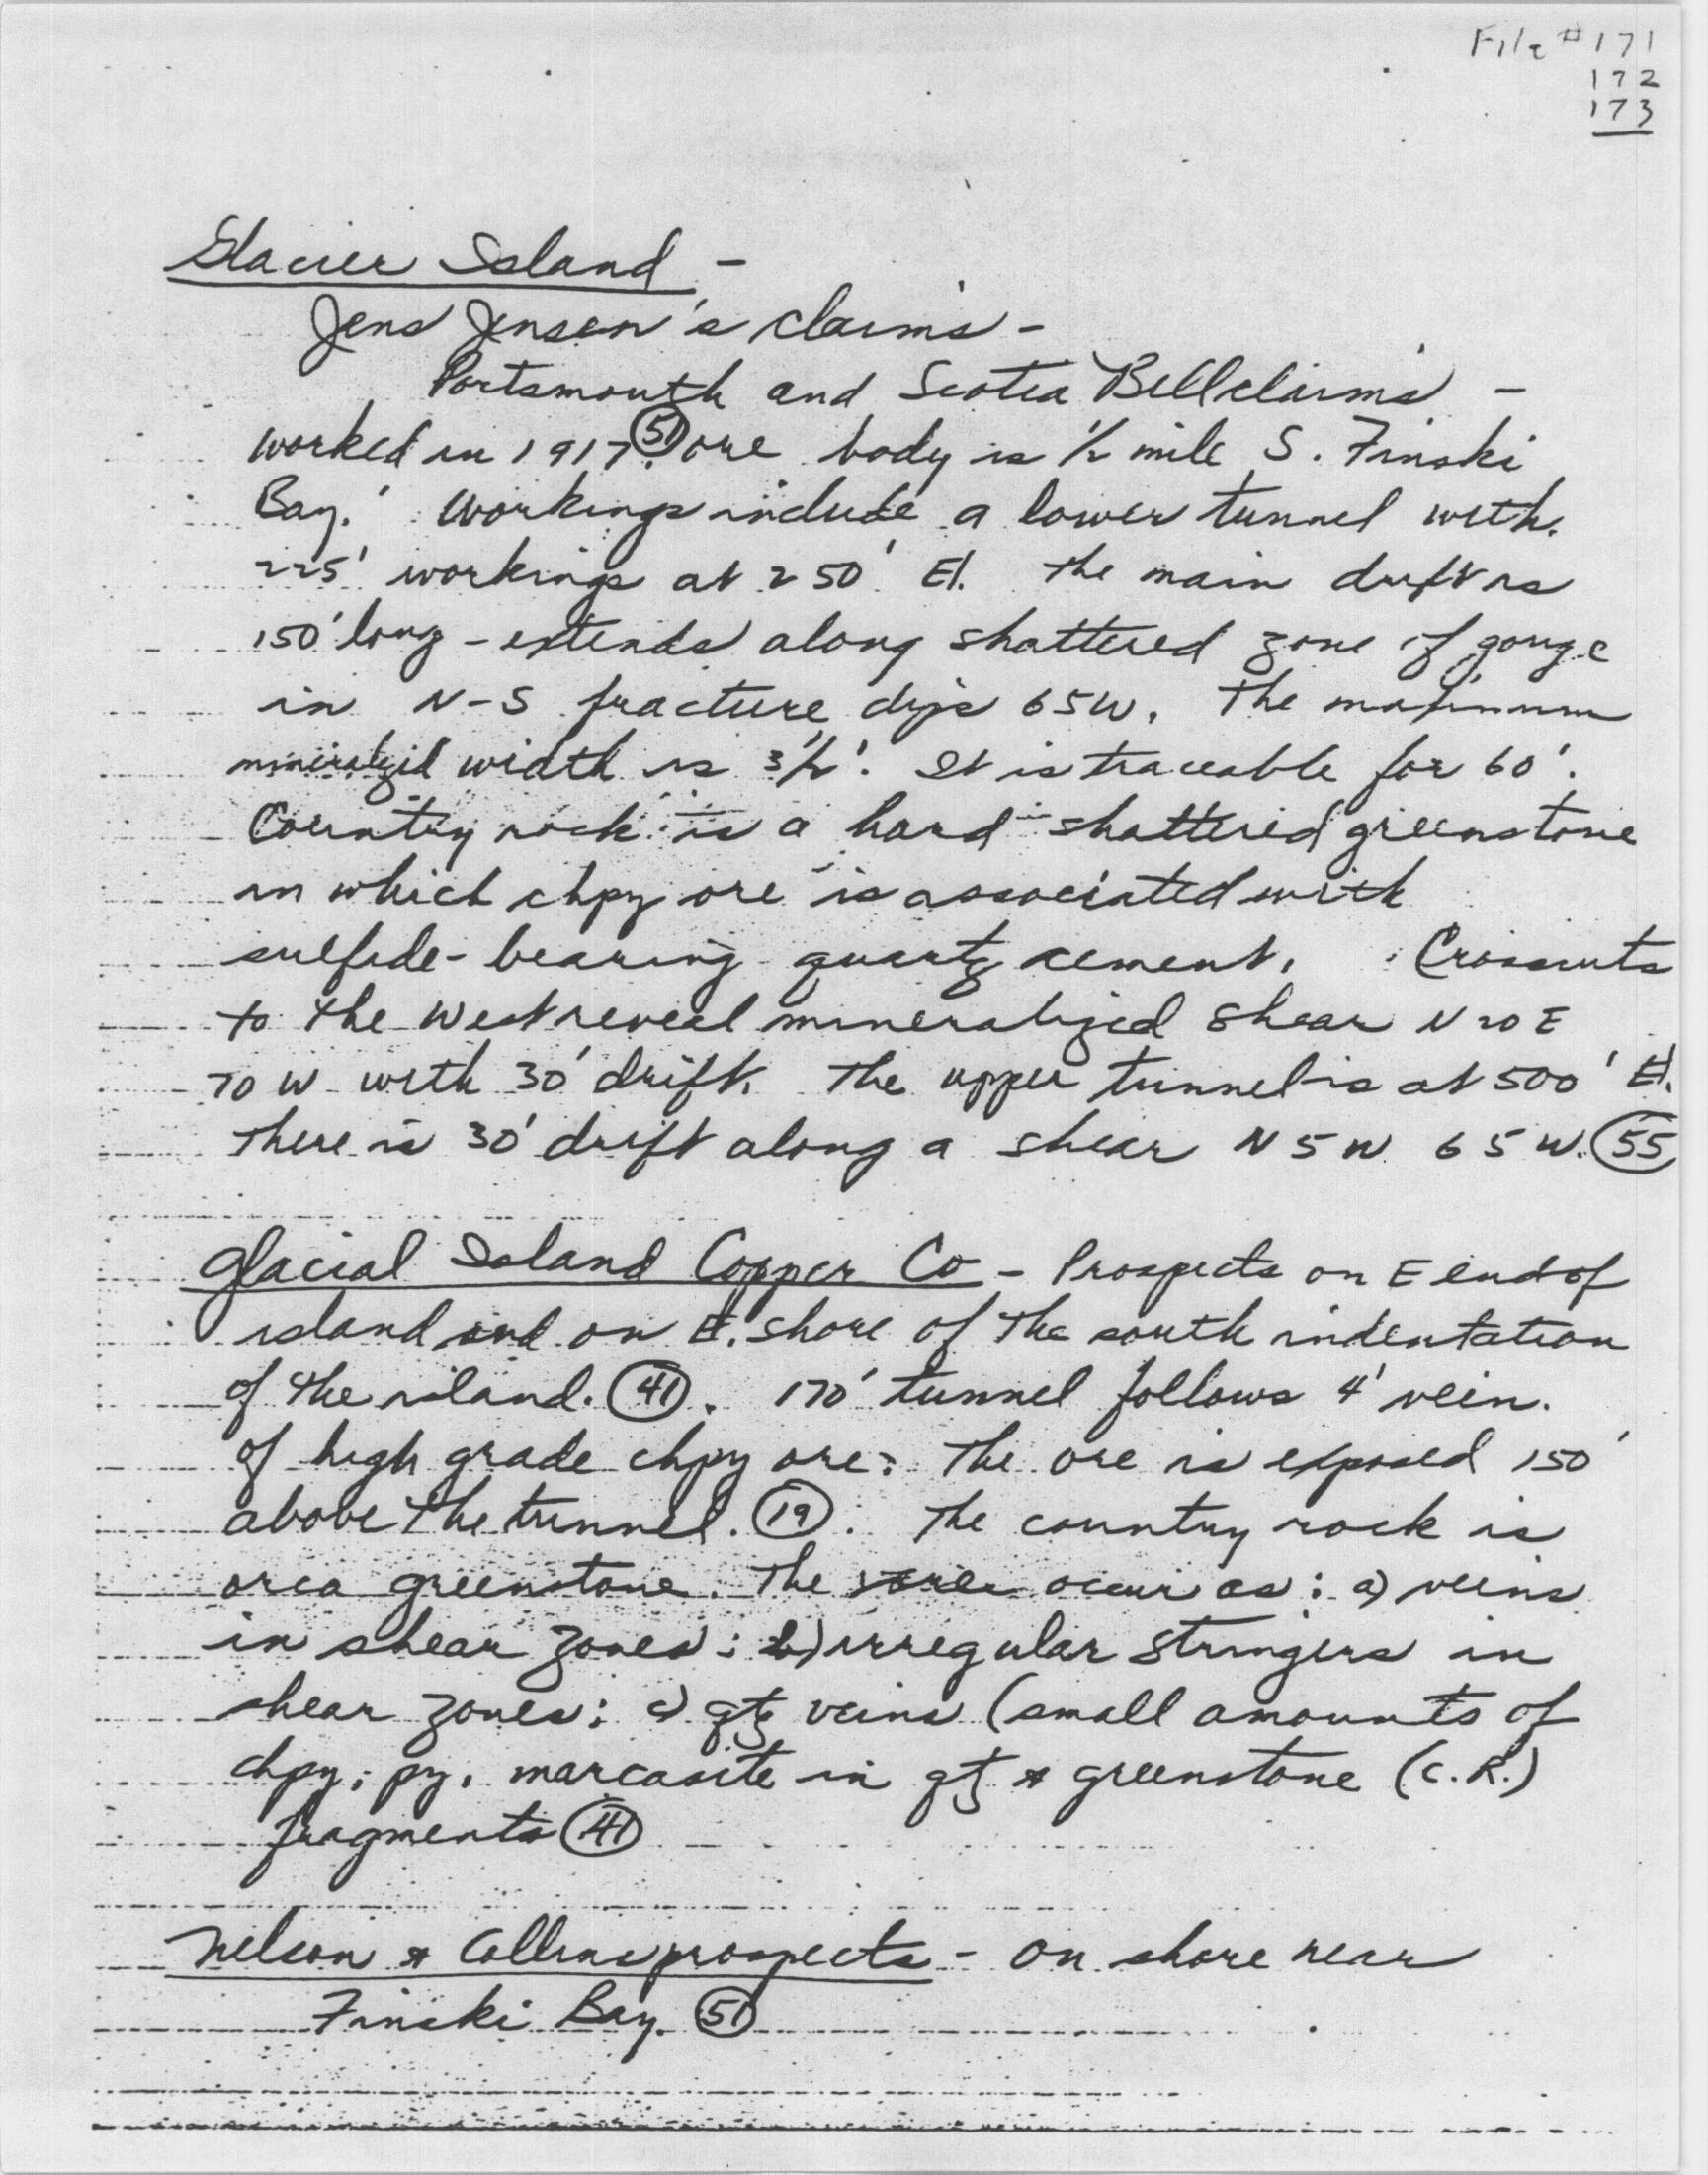 File #171
172
173
Glacier Island -
Jens Jensen's claims -
Portsmouth and Scotia Bell claims -
worked in 1917. (51) ore body is 1/2 mile S. Finski
Bay. Workings include a lower tunnel with
225' workings at 250' El. The main drift is
150' long - extends along shattered zone of gouge
in N-S fracture dips 65W. The maximum
mineralized width is 3 1/2'. It is traceable for 60'.
Country rock is a hard shattered greenstone
in which chpy ore is associated with
sulfide-bearing quartz cement. Crosscuts
to the west reveal mineralized shear N20E
70W with 30' drift. The upper tunnel is at 500' El.
There is 30' drift along a shear N5W 65W. (55)
Glacial Island Copper Co - Prospects on E end of
island and on E. shore of the south indentation
of the island. (41). 170' tunnel follows 4' vein.
of high grade chpy ore. The ore is exposed 150'
above the tunnel. (19). The country rock is
orca greenstone. The ores occur as: a) veins
in shear zones; b) irregular stringers in
shear zones; c) qtz veins (small amounts of
chpy, py, marcasite in qtz & greenstone (C.R.)
fragments (41)
Nelson & Collins prospects - on shore near
Finski Bay. (51)